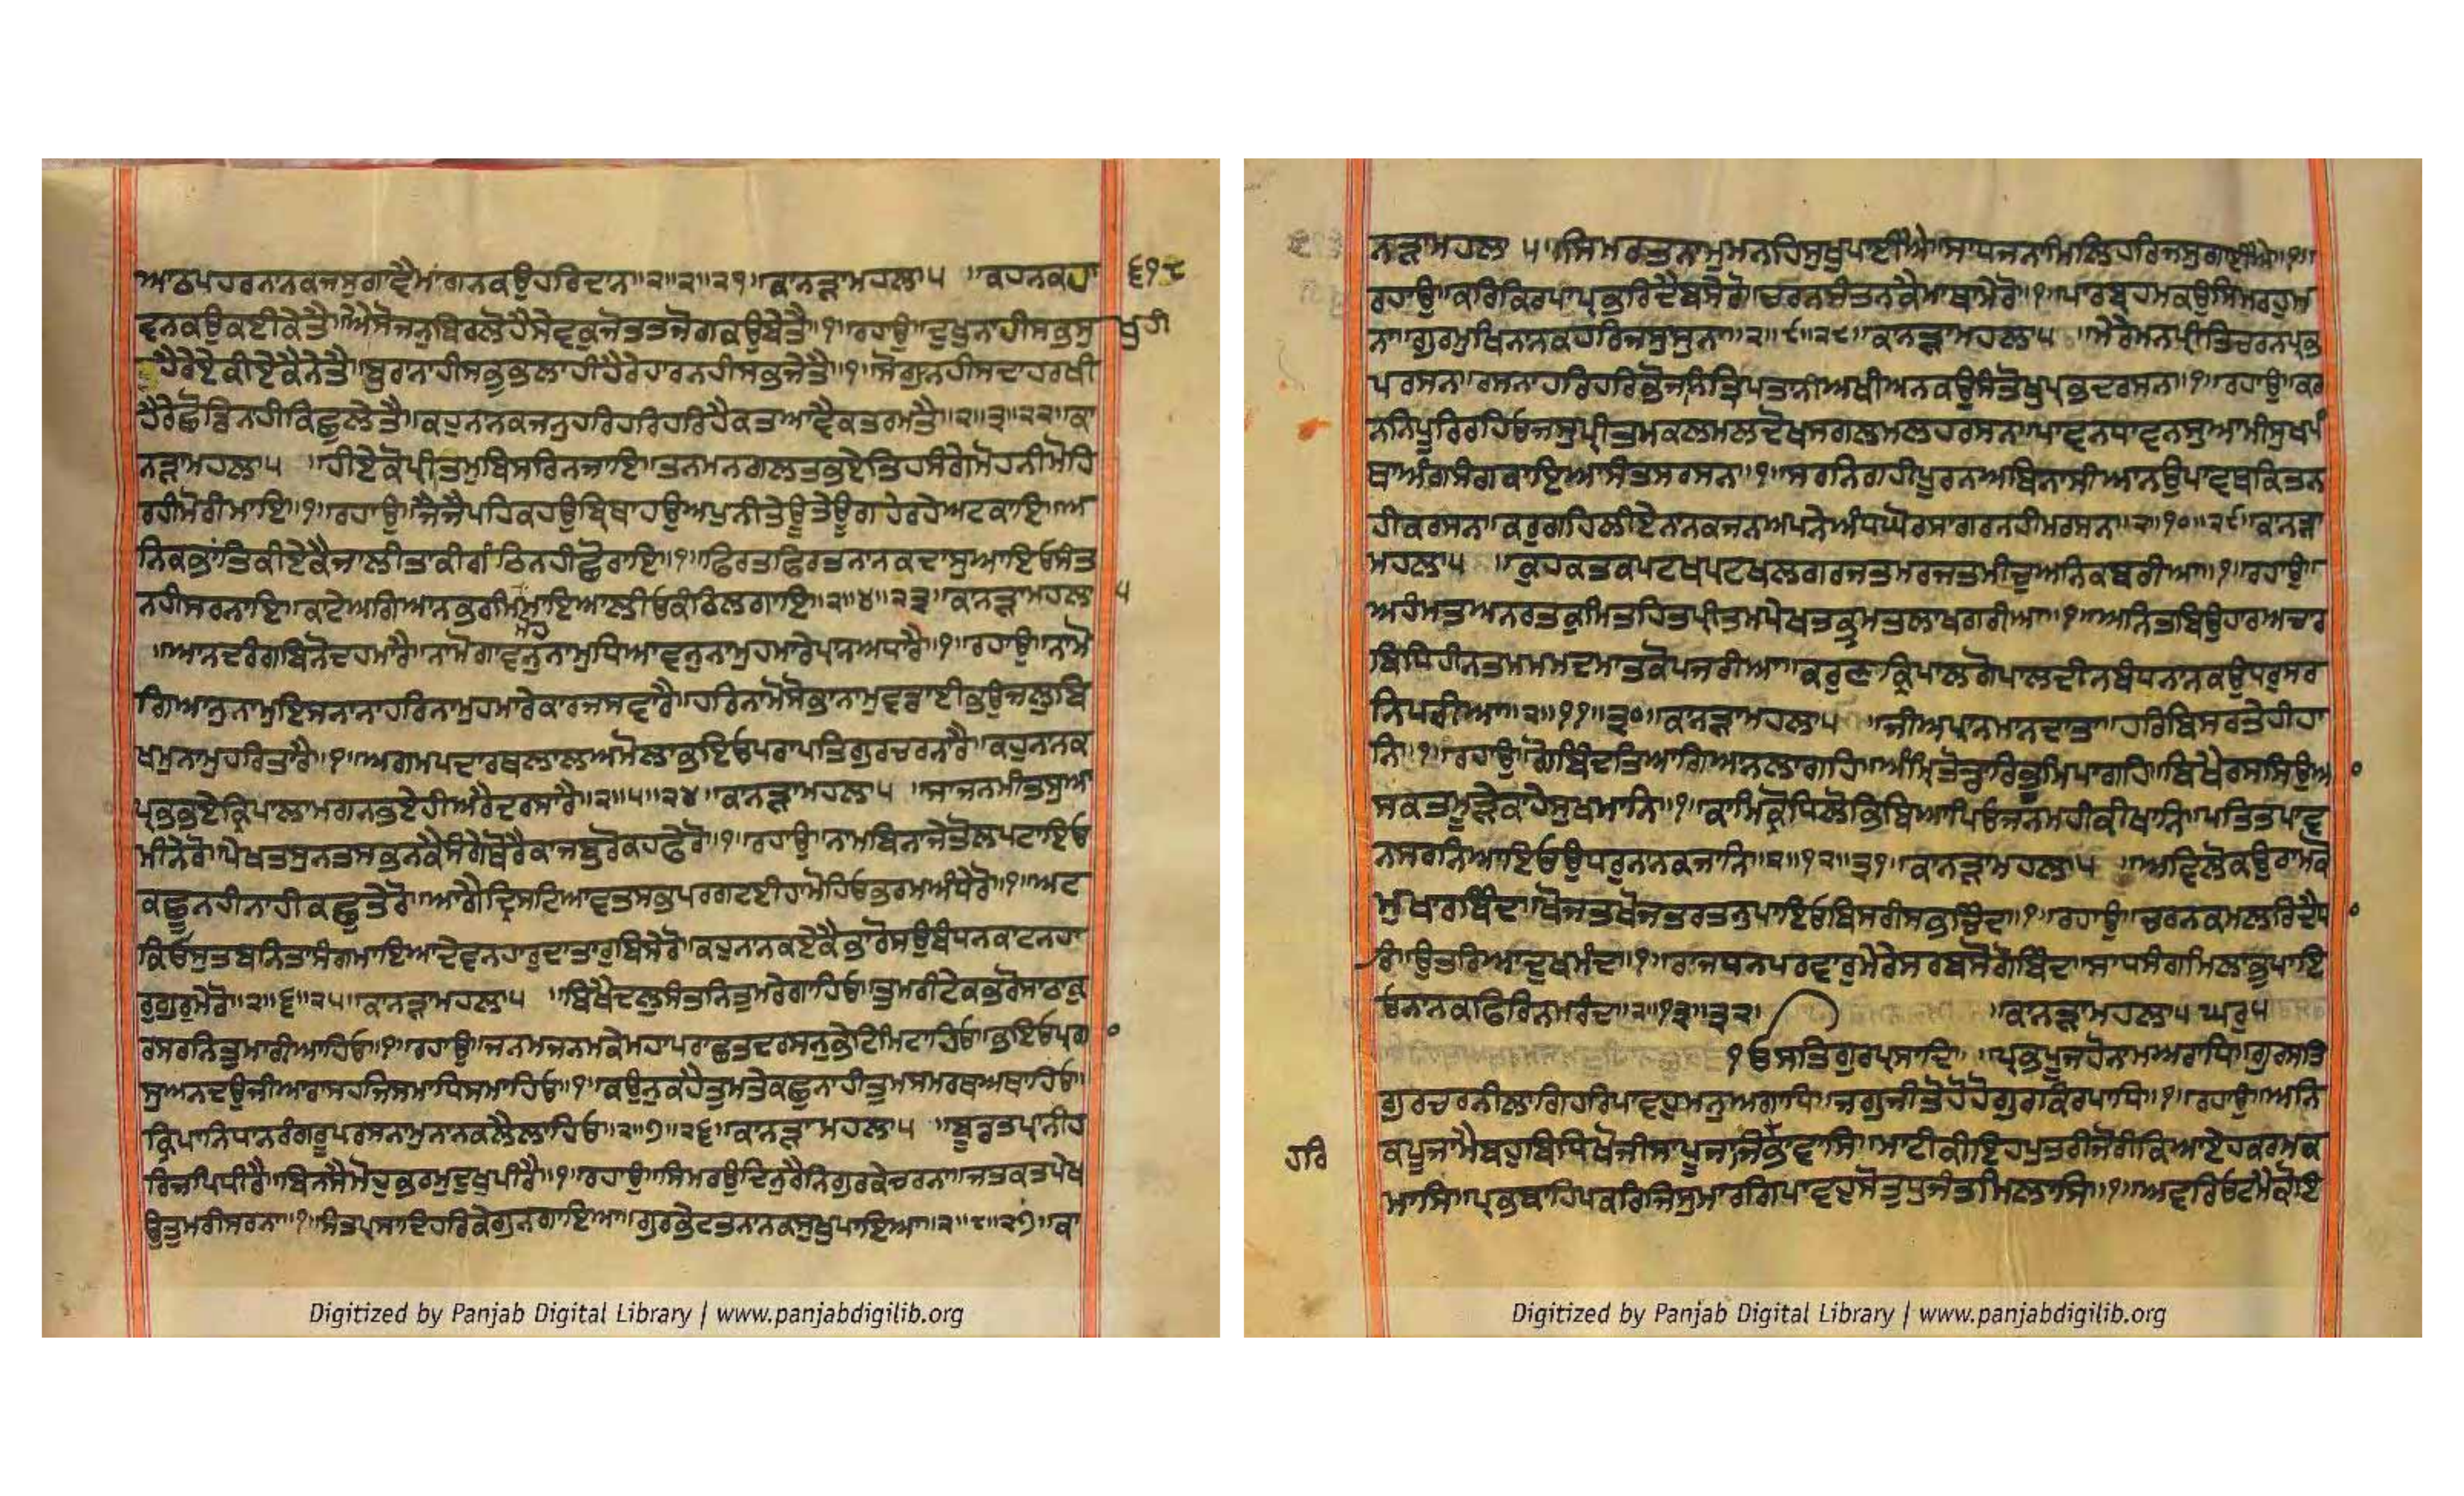 ਆਠਪਹਰਨਾਨਕਜਸੁਗਾਵੈਮਾਂਗਨਕਉਹਰਿਦਾਨ॥੨॥੨॥੨੧॥ਕਾਨੜਾਮਹਲਾ੫ ॥ਕਹਨਕਹਾ ੬੧੮
ਵਨਕਉਕਈਕੇਤੈ॥ਐਸੋਜਨੁਬਿਰਲੋਹੈਸੇਵਕੁਜੋਤਤਜੋਗਕਉਬੇਤੈ॥੧॥ਰਹਾਉ॥ਦੁਖੁਨਾਹੀਸਭੁਸੁ ਖੁਹੀ
ਹੈਰੇਏਕੀਏਕੈਨੇਤੈ॥ਬੁਰਨਾਹੀਸਭੁਭਲਾਹੀਹੈਰੇਹਾਰਨਹੀਸਭੁਜੇਤੈ॥੧॥ਸੋਗੁਨਹੀਸਦਾਹਰਖੀ
ਹੈਰੇਛੋਡਿਨਹੀਕਿਛੁਲੇਤੈ॥ਕਹੁਨਨਕਜਨੁਹਰਿਹਰਿਹਰਿਹੈਕਤਆਵੈਕਤਰਮਤੈ॥੨॥੩॥੨੨॥ਕਾ
ਨੜਾਮਹਲਾ੫ ॥ਹੀਏਕੋਪ੍ਰੀਤਮੁਬਿਸਰਿਨਜਾਇ॥ਤਨਮਨਗਲਤਭਏਤਿਹਸੰਗੇਮੋਹਨੀਮੋਹਿ
ਰਹੀਮੋਰੀਮਾਇ॥੧॥ਰਹਾਉ॥ਜੈਜੈਪਹਿਕਹਉਬ੍ਰਿਥਾਹਉਅਪੁਨੀਤੇਊਤੇਊਗਹੇਰਹੇਅਟਕਾਇ॥ਅ
ਨਿਕਭਾਂਤਿਕੀਏਕੈਜਾਲੀਤਾਕੀਗੰਠਿਨਹੀਛੋਰਾਇ॥੧॥ਫਿਰਤਫਿਰਤਨਾਨਕਦਾਸੁਆਇਓਸੰਤ
ਨਹੀਸਰਨਾਇ॥ਕਾਟੇਅਗਿਆਨਭਰਮਮਾਇਆਲੀਓਕੰਠਿਲਗਾਇ॥੨॥੪॥੨੩॥ਕਾਨੜਾਮਹਲਾ ੫
ਮੋਹ
॥ਆਨਦਰੰਗਬਿਨੋਦਹਮਾਰੈ॥ਨਾਮੋਗਾਵਨੁਨਾਮੁਧਿਆਵਨੁਨਾਮੁਹਮਾਰੇਪ੍ਰਾਨਅਧਾਰੈ॥੧॥ਰਹਾਉ॥ਨਾਮੋ
ਗਿਆਨੁਨਾਮੁਇਸਨਾਨਾਹਰਿਨਾਮੁਹਮਾਰੇਕਾਰਜਸਵਾਰੈ॥ਹਰਿਨਾਮੋਸੋਭਾਨਾਮੁਵਡਾਈਭਉਜਲੁਬਿ
ਖਮੁਨਾਮੁਹਰਿਤਾਰੈ॥੧॥ਅਗਮਪਦਾਰਥਲਾਲਅਮੋਲਾਭਇਓਪਰਾਪਤਿਗੁਰਚਰਨਾਰੈ॥ਕਹੁਨਾਨਕ
ਪ੍ਰਭਭਏਕ੍ਰਿਪਾਲਾਮਗਨਭਏਹੀਅਰੈਦਰਸਾਰੈ॥੨॥੫॥੨੪॥ਕਾਨੜਾਮਹਲਾ੫ ॥ਸਾਜਨਮੀਤਸੁਆ
ਮੀਨੇਰੋ॥ਪੇਖਤਸੁਨਤਸਭਨਕੈਸੰਗੇਥੋਰੈਕਾਜਬੁਰੋਕਹਫੇਰੋ॥੧॥ਰਹਾਉ॥ਨਾਮਬਿਨਾਜੇਤੋਲਪਟਾਇਓ
ਕਛੂਨਹੀਨਾਹੀਕਛੁਤੇਰੋ॥ਆਗੈਦ੍ਰਿਸਟਿਆਵਤਸਭਪਰਗਟਈਹਾਮੋਹਿਓਭਰਮਅੰਧੇਰੋ॥੧॥ਅਟ
ਕਿਓਸੁਤਬਨਿਤਾਸੰਗਮਾਇਆਦੇਵਨਹਾਰੁਦਾਤਾਰੁਬਿਸੇਰੋ॥ਕਹੁਨਾਨਕਏਕੈਭਾਰੋਸਉਬੰਧਨਕਾਟਨਹਾ
ਰੁਗੁਰੁਮੇਰੋ॥੨॥੬॥੨੫॥ਕਾਨੜਾਮਹਲਾ੫ ॥ਬਿਖੈਦਲੁਸੰਤਨਿਤੁਮਰੇਗਾਹਿਓ॥ਤੁਮਰੀਟੇਕਭਰੋਸਾਠਾਕੁ
ਰਸਰਨਿਤੁਮਾਰੀਆਹਿਓ॥੧॥ਰਹਾਉ॥ਜਨਮਜਨਮਕੇਮਹਾਪਰਾਛਤਦਰਸਨੁਭੇਟਿਮਿਟਾਹਿਓ॥ਭਇਓਪ੍ਰਗਾ
ਸੁਅਨਦਉਜੀਆਰਾਸਹਜਿਸਮਾਧਿਸਮਾਹਿਓ॥੧॥ਕਉਨੁਕਹੈਤੁਮਤੇਕਛੁਨਾਹੀਤੁਮਸਮਰਥਅਥਾਹਿਓ॥
ਕ੍ਰਿਪਾਨਿਧਾਨਰੰਗਰੂਪਰਸਨਾਮੁਨਾਨਕਲੈਲਾਹਿਓ॥੨॥੭॥੨੬॥ਕਾਨੜਾਮਹਲਾ੫ ॥ਬੂਡਤਪ੍ਰਾਨੀਹ
ਰਿਜਪਿਧੀਰੈ॥ਬਿਨਸੈਮੋਹੁਭਰਮੁਦੁਖੁਪੀਰੈ॥੧॥ਰਹਾਉ॥ਸਿਮਰਉਦਿਨੁਰੈਨਿਗੁਰਕੇਚਰਨਾ॥ਜਤਕਤਪੇਖ
ਉਤੁਮਰੀਸਰਨਾ॥੧॥ਸੰਤਪ੍ਰਸਾਦਿਹਰਿਕੇਗੁਨਗਾਇਆ॥ਗੁਰਭੇਟਤਨਾਨਕਸੁਖੁਪਾਇਆ॥੨॥੮॥੨੭॥ਕਾ
ਨੜਾਮਹਲਾ ੫॥ਸਿਮਰਤਨਾਮੁਮਨਹਿਸੁਖੁਪਾਈਐ॥ਸਾਧਜਨਾਮਿਲਿਹਰਿਜਸੁਗਾਈਐ॥੧॥
ਰਹਾਉ॥ਕਰਿਕਿਰਪਾਪ੍ਰਭਰਿਦੈਬਸੇਰੋ॥ਚਰਨਸੰਤਨਕੈਮਾਥਾਮੇਰੋ॥੧॥ਪਾਰਬ੍ਰਹਮਕਉਸਿਮਰਹੁਮ
ਨਾ॥ਗੁਰਮੁਖਿਨਾਨਕਹਰਿਜਸੁਸੁਨਾ॥੨॥੯॥੨੮॥ਕਾਨੜਾਮਹਲਾ੫ ॥ਮੇਰੇਮਨਪ੍ਰੀਤਿਚਰਨਪ੍ਰਭ
ਪਰਸਨ॥ਰਸਨਾਹਰਿਹਰਿਭੋਜਨਿਤ੍ਰਿਪਤਾਨੀਅਖੀਅਨਕਉਸੰਤੋਖੁਪ੍ਰਭਦਰਸਨ॥੧॥ਰਹਾਉ॥ਕਰ
ਨਨਿਪੂਰਿਰਹਿਓਜਸੁਪ੍ਰੀਤਮਕਲਮਲਦੋਖਸਗਲਮਲਹਰਸਨ॥ਪਾਵਨਧਾਵਨਸੁਆਮੀਸੁਖਪੰ
ਥਾਅੰਗਸੰਗਕਾਇਆਸੰਤਸਰਸਨ॥੧॥ਸਰਨਿਗਹੀਪੂਰਨਅਬਿਨਾਸੀਆਨਉਪਾਵਥਕਿਤਨ
ਹੀਕਰਸਨ॥ਕਰੁਗਹਿਲੀਏਨਾਨਕਜਨਅਪਨੇਅੰਧਘੋਰਸਾਗਰਨਹੀਮਰਸਨ॥੨॥੧੦॥੨੯॥ਕਾਨੜਾ
ਮਹਲਾ੫ ॥ਕੁਹਕਤਕਪਟਖਪਟਖਲਗਰਜਤਮਰਜਤਮੀਚੁਅਨਿਕਬਰੀਆ॥੧॥ਰਹਾਉ॥
ਅਹੰਮਤਅਨਰਤਕੁਮਿਤਹਿਤਪ੍ਰੀਤਮਪੇਖਤਭ੍ਰਮਤਲਾਖਗਰੀਆ॥੧॥ਅਨਿਤਬਿਉਹਾਰਅਚਾਰ
ਬਿਧਿਹੀਨਤਮਮਮਦਮਾਤਕੋਪਜਰੀਆ॥ਕਰੁਣਕ੍ਰਿਪਾਲਗੋਪਾਲਦੀਨਬੰਧੁਨਾਨਕਉਧਰੁਸਰ
ਨਿਪਰੀਆ॥੨॥੧੧॥੩੦॥ਕਾਨੜਾਮਹਲਾ੫ ॥ਜੀਅਪ੍ਰਾਨਮਾਨਦਾਤਾ॥ਹਰਿਬਿਸਰਤੇਹੀਹਾ
ਨਿ॥੧॥ਰਹਾਉ॥ਗੋਬਿੰਦਤਿਆਗਿਆਨਲਾਗਹਿ॥ਅੰਮ੍ਰਿਤੋਡਾਰਿਭੂਮਿਪਾਗਹਿ॥ਬਿਖੈਰਸਸਿਉਆ ੦
ਸਕਤਮੂੜੇਕਾਹੇਸੁਖਮਾਨਿ॥੧॥ਕਾਮਿਕ੍ਰੋਧਿਲੋਭਿਬਿਆਪਿਓਜਨਮਹੀਕੀਖਾਨਿ॥ਪਤਿਤਪਾਵ
ਨਸਰਨਿਆਇਓਉਧਰੁਨਾਨਕਜਾਨਿ॥੨॥੧੨॥੩੧॥ਕਾਨੜਾਮਹਲਾ੫ ॥ਅਵਿਲੋਕਉਰਾਮਕੋ
ਮੁਖਾਰਬਿੰਦ॥ਖੋਜਤਖੋਜਤਰਤਨੁਪਾਇਓਬਿਸਰੀਸਭਚਿੰਦ॥੧॥ਰਹਾਉ॥ਚਰਨਕਮਲਰਿਦੈਧਾ ੦
ਰਿ॥ਉਤਰਿਆਦੁਖਮੰਦ॥੧॥ਰਾਜਧਨਪਰਵਾਰੁਮੇਰੇਸਰਬਸੋਗੋਬਿੰਦ॥ਸਾਧਸੰਗਮਿਲਾਭੁਪਾਇ
ਓਨਾਨਕਫਿਰਿਨਮਰੰਦ॥੨॥੧੩॥੩੨॥ ॥ਕਾਨੜਾਮਹਲਾ੫ਘਰੁ੫
੧ਓਸਤਿਗੁਰਪ੍ਰਸਾਦਿ॥ ॥ਪ੍ਰਭਪੂਜਹੋਨਾਮਅਰਾਧਿ॥ਗੁਰਸਤਿ
ਗੁਰਚਰਨੀਲਾਗਿਹਰਿਪਾਵਹੁਮਨੁਅਗਾਧਿ॥ਜਗੁਜੀਤੋਹੋਹੋਗੁਰਕਿਰਪਾਧਿ॥੧॥ਰਹਾਉ॥ਅਨਿ
ਹਰਿ ਕਪੂਜਾਮੈਬਹੁਬਿਧਿਖੋਜੀਸਾਪੂਜਾਜਿਭਾਵਾਸਿ॥ਮਾਟੀਕੀਇਹਪੁਤਰੀਜੋਰੀਕਿਆਏਹਕਰਮਕ
ਮਾਸਿ॥ਪ੍ਰਭਬਾਹਪਕਰਿਜਿਸੁਮਾਰਗਿਪਾਵਹੁਸੋਤੁਧੁਜੰਤਮਿਲਾਸਿ॥੧॥ਅਵਰਓਟਮੈਕੋਇ
Digitized by Panjab Digital Library | www.panjabdigilib.org
Digitized by Panjab Digital Library | www.panjabdigilib.org